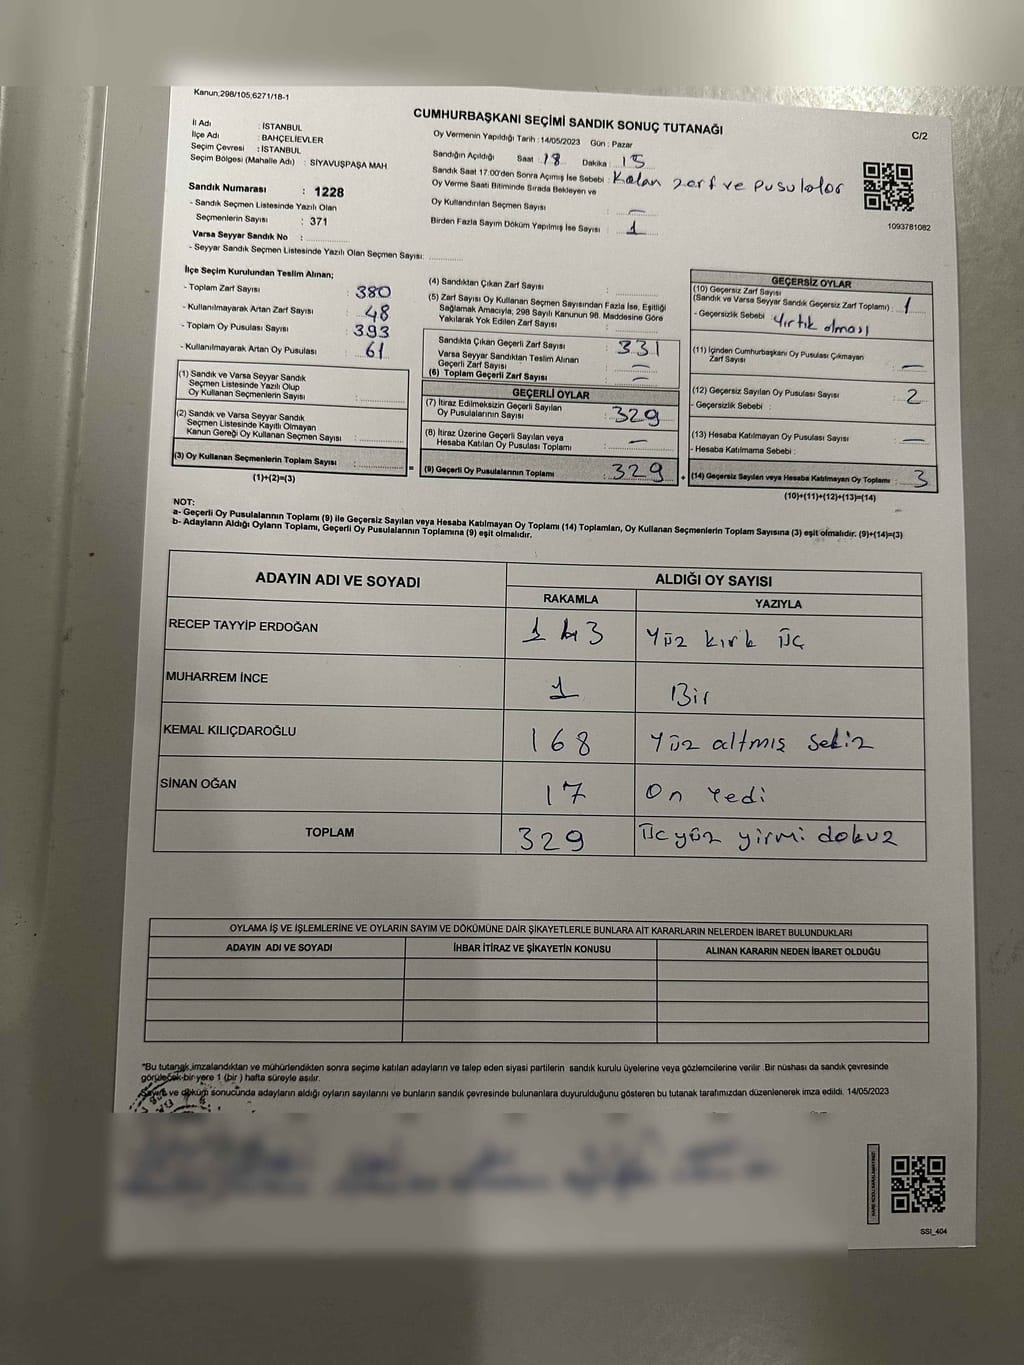 Kanun;298/105,6271/18-1
CUMHURBAŞKANI SEÇİMİ SANDIK SONUÇ TUTANAĞI
C/2
İl Adı : İSTANBUL
İlçe Adı : BAHÇELİEVLER
Seçim Çevresi : İSTANBUL
Seçim Bölgesi (Mahalle Adı) : SİYAVUŞPAŞA MAH
Oy Vermenin Yapıldığı Tarih : 14/05/2023 Gün : Pazar
Sandığın Açıldığı Saat : 18 Dakika : 15
Sandık Saat 17:00'den Sonra Açımış İse Sebebi : Kalan zarf ve pusulalar
Oy Verme Saati Bitiminde Sırada Bekleyen ve
Oy Kullandırılan Seçmen Sayısı : —
Birden Fazla Sayım Döküm Yapılmış İse Sayısı : 1
1093781082
Sandık Numarası : 1228
- Sandık Seçmen Listesinde Yazılı Olan
Seçmenlerin Sayısı : 371
Varsa Seyyar Sandık No :
- Seyyar Sandık Seçmen Listesinde Yazılı Olan Seçmen Sayısı:
İlçe Seçim Kurulundan Teslim Alınan;
- Toplam Zarf Sayısı : 380
- Kullanılmayarak Artan Zarf Sayısı : 48
- Toplam Oy Pusulası Sayısı : 393
- Kullanılmayarak Artan Oy Pusulası : 61
(1) Sandık ve Varsa Seyyar Sandık
Seçmen Listesinde Yazılı Olup
Oy Kullanan Seçmenlerin Sayısı :
(2) Sandık ve Varsa Seyyar Sandık
Seçmen Listesinde Kayıtlı Olmayan
Kanun Gereği Oy Kullanan Seçmen Sayısı :
(3) Oy Kullanan Seçmenlerin Toplam Sayısı :
(1)+(2)=(3)
(4) Sandıktan Çıkan Zarf Sayısı :
(5) Zarf Sayısı Oy Kullanan Seçmen Sayısından Fazla İse, Eşitliği
Sağlamak Amacıyla; 298 Sayılı Kanunun 98. Maddesine Göre
Yakılarak Yok Edilen Zarf Sayısı :
Sandıkta Çıkan Geçerli Zarf Sayısı : 331
Varsa Seyyar Sandıktan Teslim Alınan
Geçerli Zarf Sayısı : —
(6) Toplam Geçerli Zarf Sayısı : —
GEÇERLİ OYLAR
(7) İtiraz Edilmeksizin Geçerli Sayılan
Oy Pusulalarının Sayısı : 329
(8) İtiraz Üzerine Geçerli Sayılan veya
Hesaba Katılan Oy Pusulası Toplamı : —
= (9) Geçerli Oy Pusulalarının Toplamı : 329 +
GEÇERSİZ OYLAR
(10) Geçersiz Zarf Sayısı
(Sandık ve Varsa Seyyar Sandık Geçersiz Zarf Toplamı) : 1
- Geçersizlik Sebebi : Yırtık olması
(11) İçinden Cumhurbaşkanı Oy Pusulası Çıkmayan
Zarf Sayısı : —
(12) Geçersiz Sayılan Oy Pusulası Sayısı : 2
- Geçersizlik Sebebi :
(13) Hesaba Katılmayan Oy Pusulası Sayısı : —
- Hesaba Katılmama Sebebi :
(14) Geçersiz Sayılan veya Hesaba Katılmayan Oy Toplamı : 3
(10)+(11)+(12)+(13)=(14)
NOT:
a- Geçerli Oy Pusulalarının Toplamı (9) ile Geçersiz Sayılan veya Hesaba Katılmayan Oy Toplamı (14) Toplamları, Oy Kullanan Seçmenlerin Toplam Sayısına (3) eşit olmalıdır. (9)+(14)=(3)
b- Adayların Aldığı Oyların Toplamı, Geçerli Oy Pusulalarının Toplamına (9) eşit olmalıdır.
ADAYIN ADI VE SOYADI ALDIĞI OY SAYISI
RAKAMLA YAZIYLA
RECEP TAYYİP ERDOĞAN 143 Yüz kırk üç
MUHARREM İNCE 1 Bir
KEMAL KILIÇDAROĞLU 168 Yüz altmış sekiz
SİNAN OĞAN 17 On Yedi
TOPLAM 329 Üç yüz yirmi dokuz
OYLAMA İŞ VE İŞLEMLERİNE VE OYLARIN SAYIM VE DÖKÜMÜNE DAİR ŞİKAYETLERLE BUNLARA AİT KARARLARIN NELERDEN İBARET BULUNDUKLARI
ADAYIN ADI VE SOYADI İHBAR İTİRAZ VE ŞİKAYETİN KONUSU ALINAN KARARIN NEDEN İBARET OLDUĞU
*Bu tutanak imzalandıktan ve mühürlendikten sonra seçime katılan adayların ve talep eden siyasi partilerin sandık kurulu üyelerine veya gözlemcilerine verilir. Bir nüshası da sandık çevresinde
görülecek bir yere 1 (bir ) hafta süreyle asılır.
Sayım ve döküm sonucunda adayların aldığı oyların sayılarını ve bunların sandık çevresinde bulunanlara duyurulduğunu gösteren bu tutanak tarafımızdan düzenlenerek imza edildi. 14/05/2023
SSİ_404